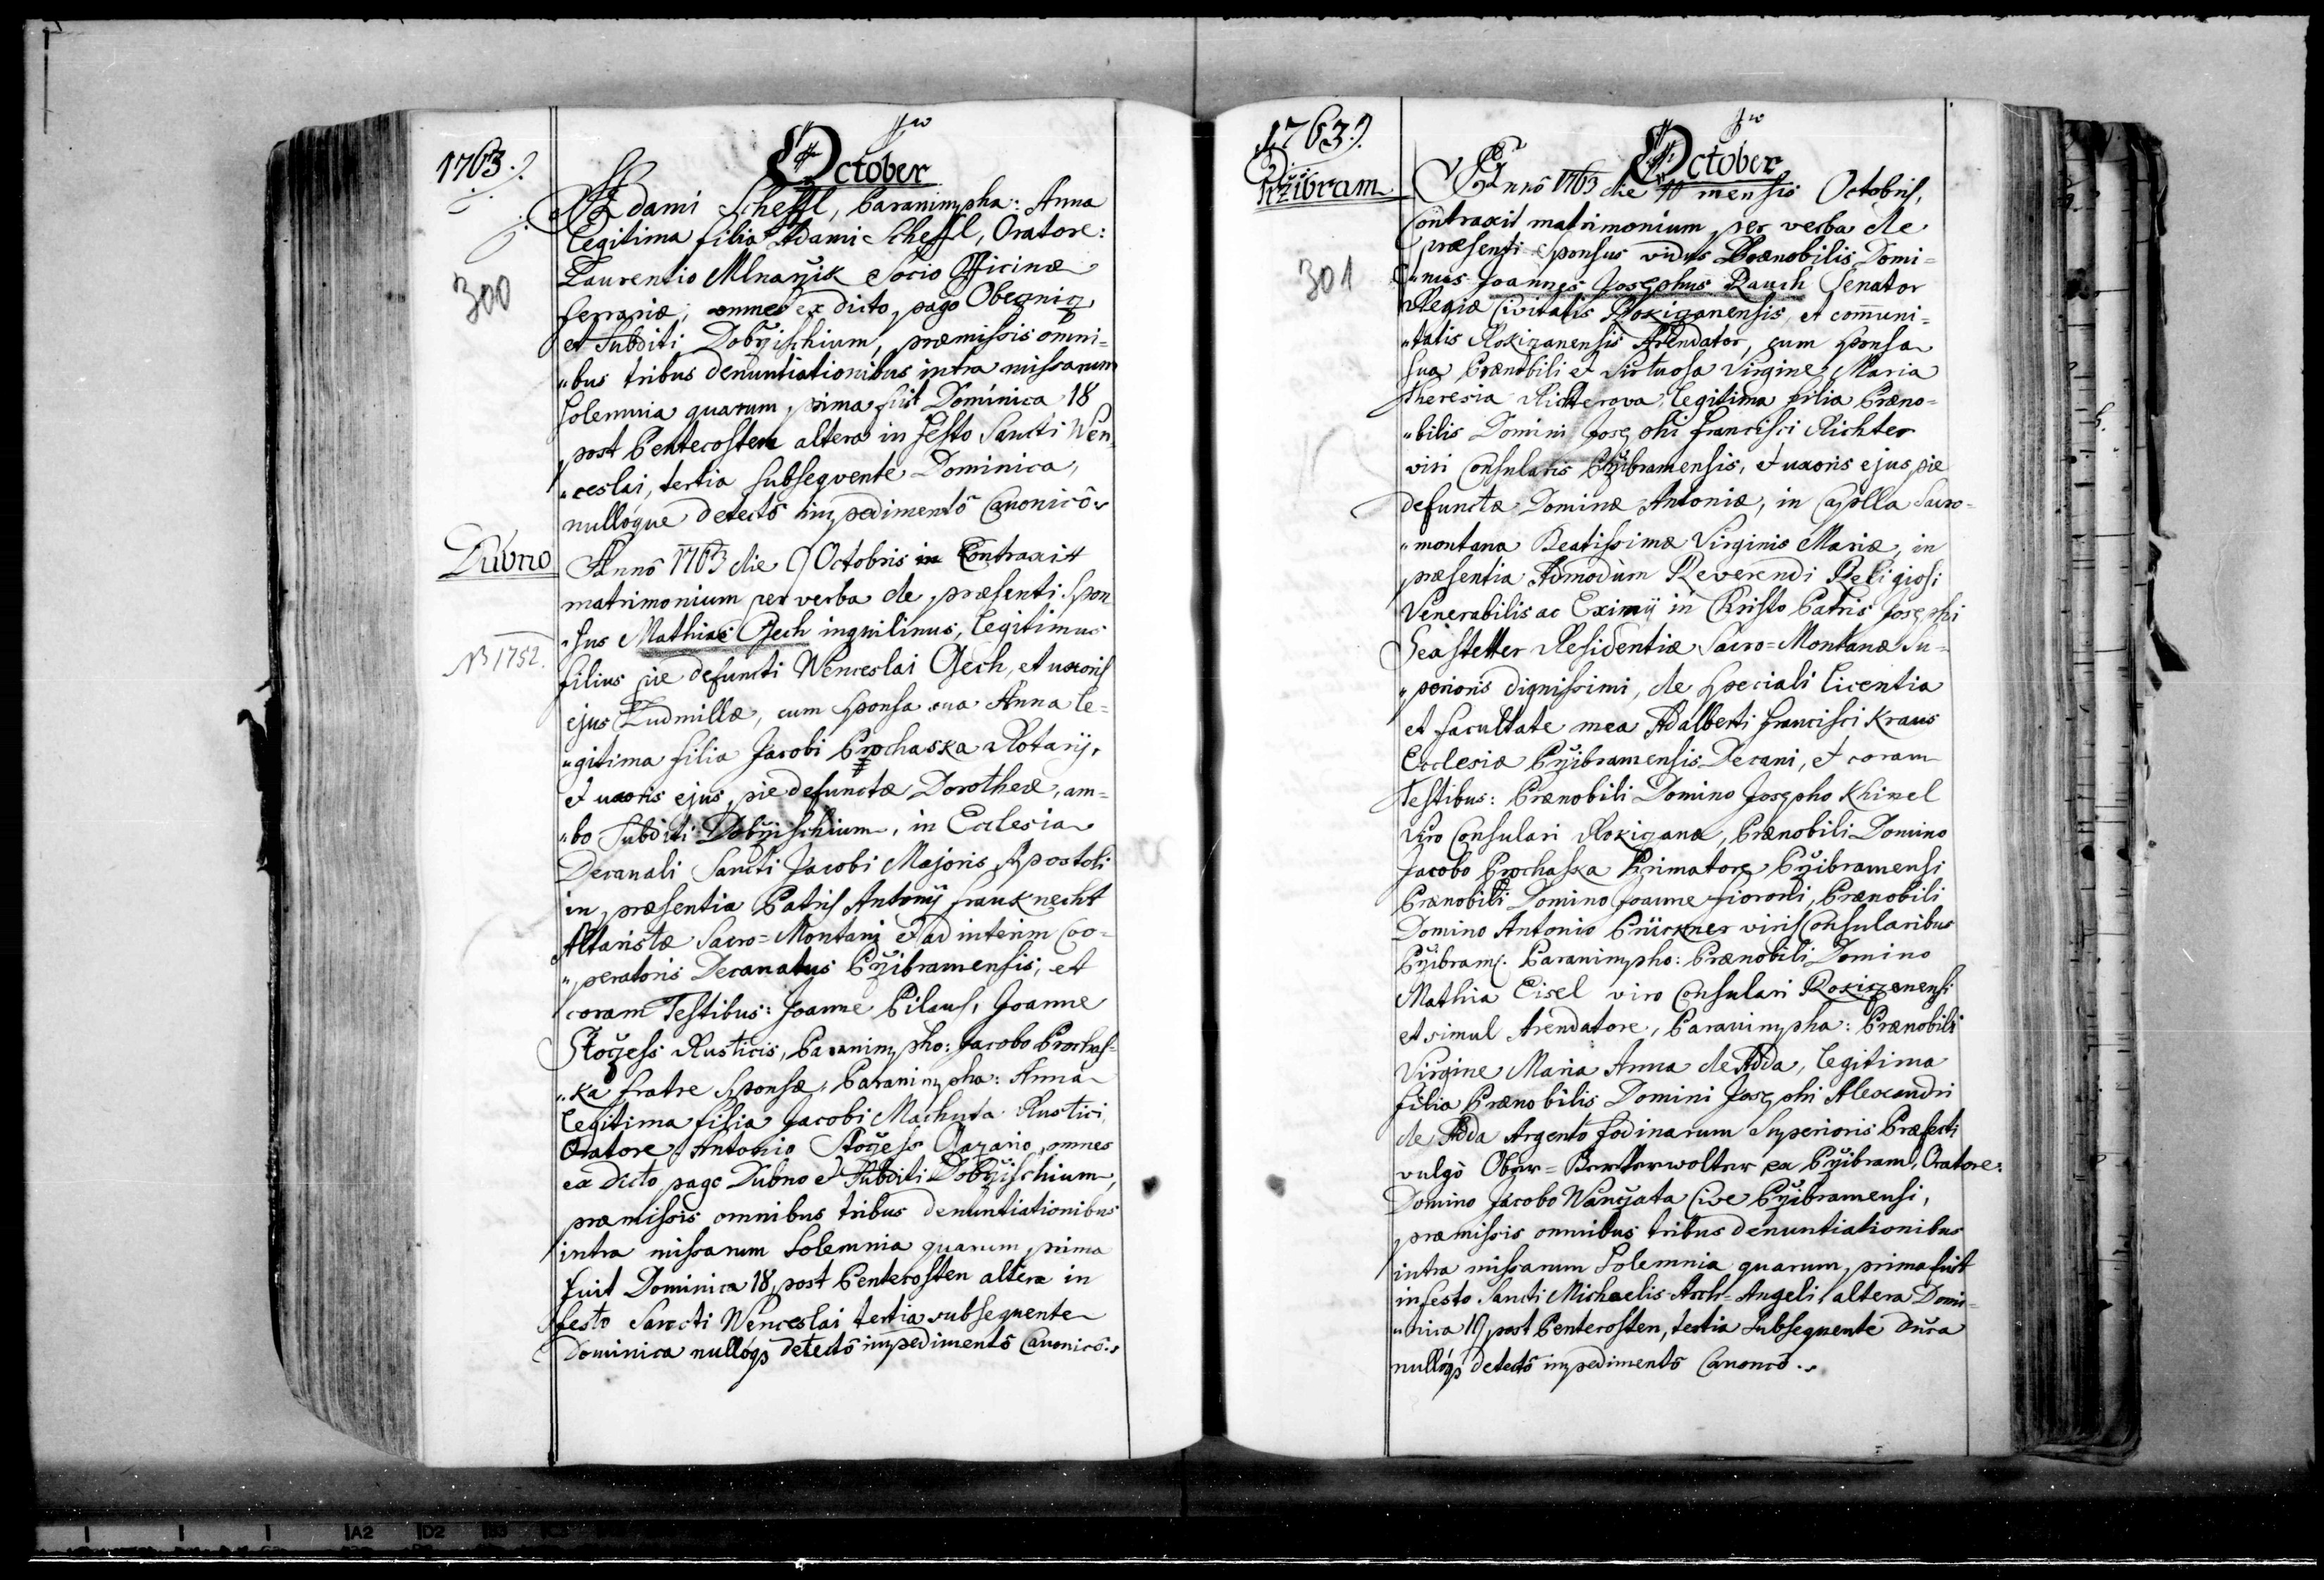 1763.
October
Adami Scheffl, Paranimpha: Anna
legitima filia Adami Scheffl, Oratore:
Laurentio Mlnařik Socio Officinæ
300
ferrariæ; omnes ex dicto pago Obecnicz
et Subditi Dobřischium, præmissis omni=
"bus tribus denuntiationibus intra missarum
Solemnia quarum prima fuit Dominica 18
post Pentecosten altera in festo Sancti Wen
"ceslai, tertia subseqvente Dominica,
nullóque detectô impedimentô Canonicô
Dubno
Annô 1763 die 9 Octobris Contraxit
matrimonium per verba de præsenti Spon
"sus Mathias Czech inquilinus, legitimus
NB 1752.
filius pie defuncti Wenceslai Czech, et uxoris
ejus Ludmillæ, cum sponsa sua Anna le=
"gitima filia Jacobi Prochaska Rotarij,
et uxoris ejus pie defunctæ Dorotheæ, am=
"bo Subditi Dobřischium, in Ecclesia
Decanali Sancti Jacobi Majoris Apostoli
in præsentia Patris Antonij frauknecht
Altaristæ Sacro=Montani et ad interim Coo=
"peratoris Decanatus Přibramensis, et
coram Testibus: Joanne Pilaus, Joanne
Stoczess Rusticis, Paranimpho: Jacobo Prochas=
"ka fratre Sponsæ, Paranimpha: Anna
legitima filia Jacobi Machuta Rustici
Oratore Antonio Stoczess Casario, omnes
ex dicto pago Dubno et Subditi Dobřischium,
præmissis omnibus tribus denuntiationibus
intra missarum Solemnia quarum prima
fuit Dominica 18 post Pentecosten altera in
festo Sancti Wenceslai tertia subsequente
Dominica nullóqs detectô impedimentô Canonicô.
1763.
October
Pržibram
Annô 1763 die 10 mensis Octobris,
Contraxit matrimonium per verba de
præsenti Sponsus vidus Prænobilis Domi=
301
"nus Joannes Josephus Rauch Senator
Regiæ Civitatis Rokiczanensis, et com̄uni=
"tatis Rokizanensis Arendator, cum sponsa
sua Prænobili et Virtuosa Virgine Maria
Theresia Richterova, legitima filia Præno=
"bilis Domini Josephi Francisci Richter
viri Consularis Přibramensis, et uxoris ejus pie
defunctæ Dominæ Antoniæ, in Capella Sacro=
"montana Beatissimæ Virginis Mariæ, in
præsentia Admodùm Reverendi Religiosi
Venerabilis ac Eximij in Christo Patris Josephi
Seastetter Residentiæ Sacro=Montanæ Su=
"perioris dignissimi, de speciali licentia
et facultate mea Adalberti Francisci Kraus
Ecclesiæ Přibramensis Decani, et coram
Testibus: Prænobili Domino Josepho Khinel
Viro Consulari Rokizanæ, Prænobili Domino
Jacobo Prochaska Primatore Přibramensi
Prænobili Domino Joanne Fioroni, Prænobili
Domino Antonio Prückner viris Consularibus
Přibram. Paranimpho: Prænobili Domino
Mathia Eisel viro Consulari Rokiczanensi
et simul Arendatore, Paranimpha: Prænobili
Virgine Maria Anna de Adda, legitima
filia Prænobilis Domini Josephi Alexandri
de Adda Argento fodinarum Superioris Præfecti
vulgò Ober=Berkverwolter ex Přibram, Oratore:
Domino Jacobo Wančata Cive Přibramensi,
præmissis omnibus tribus denuntiationibus
intra missarum Solemnia quarum prima fuit
in festo Sancti Michaelis Arch=Angeli altera Domi=
"nica 19 post Pentecosten, tertia subsequente Dnica
nullóqs detectô impedimentô Canonicô.